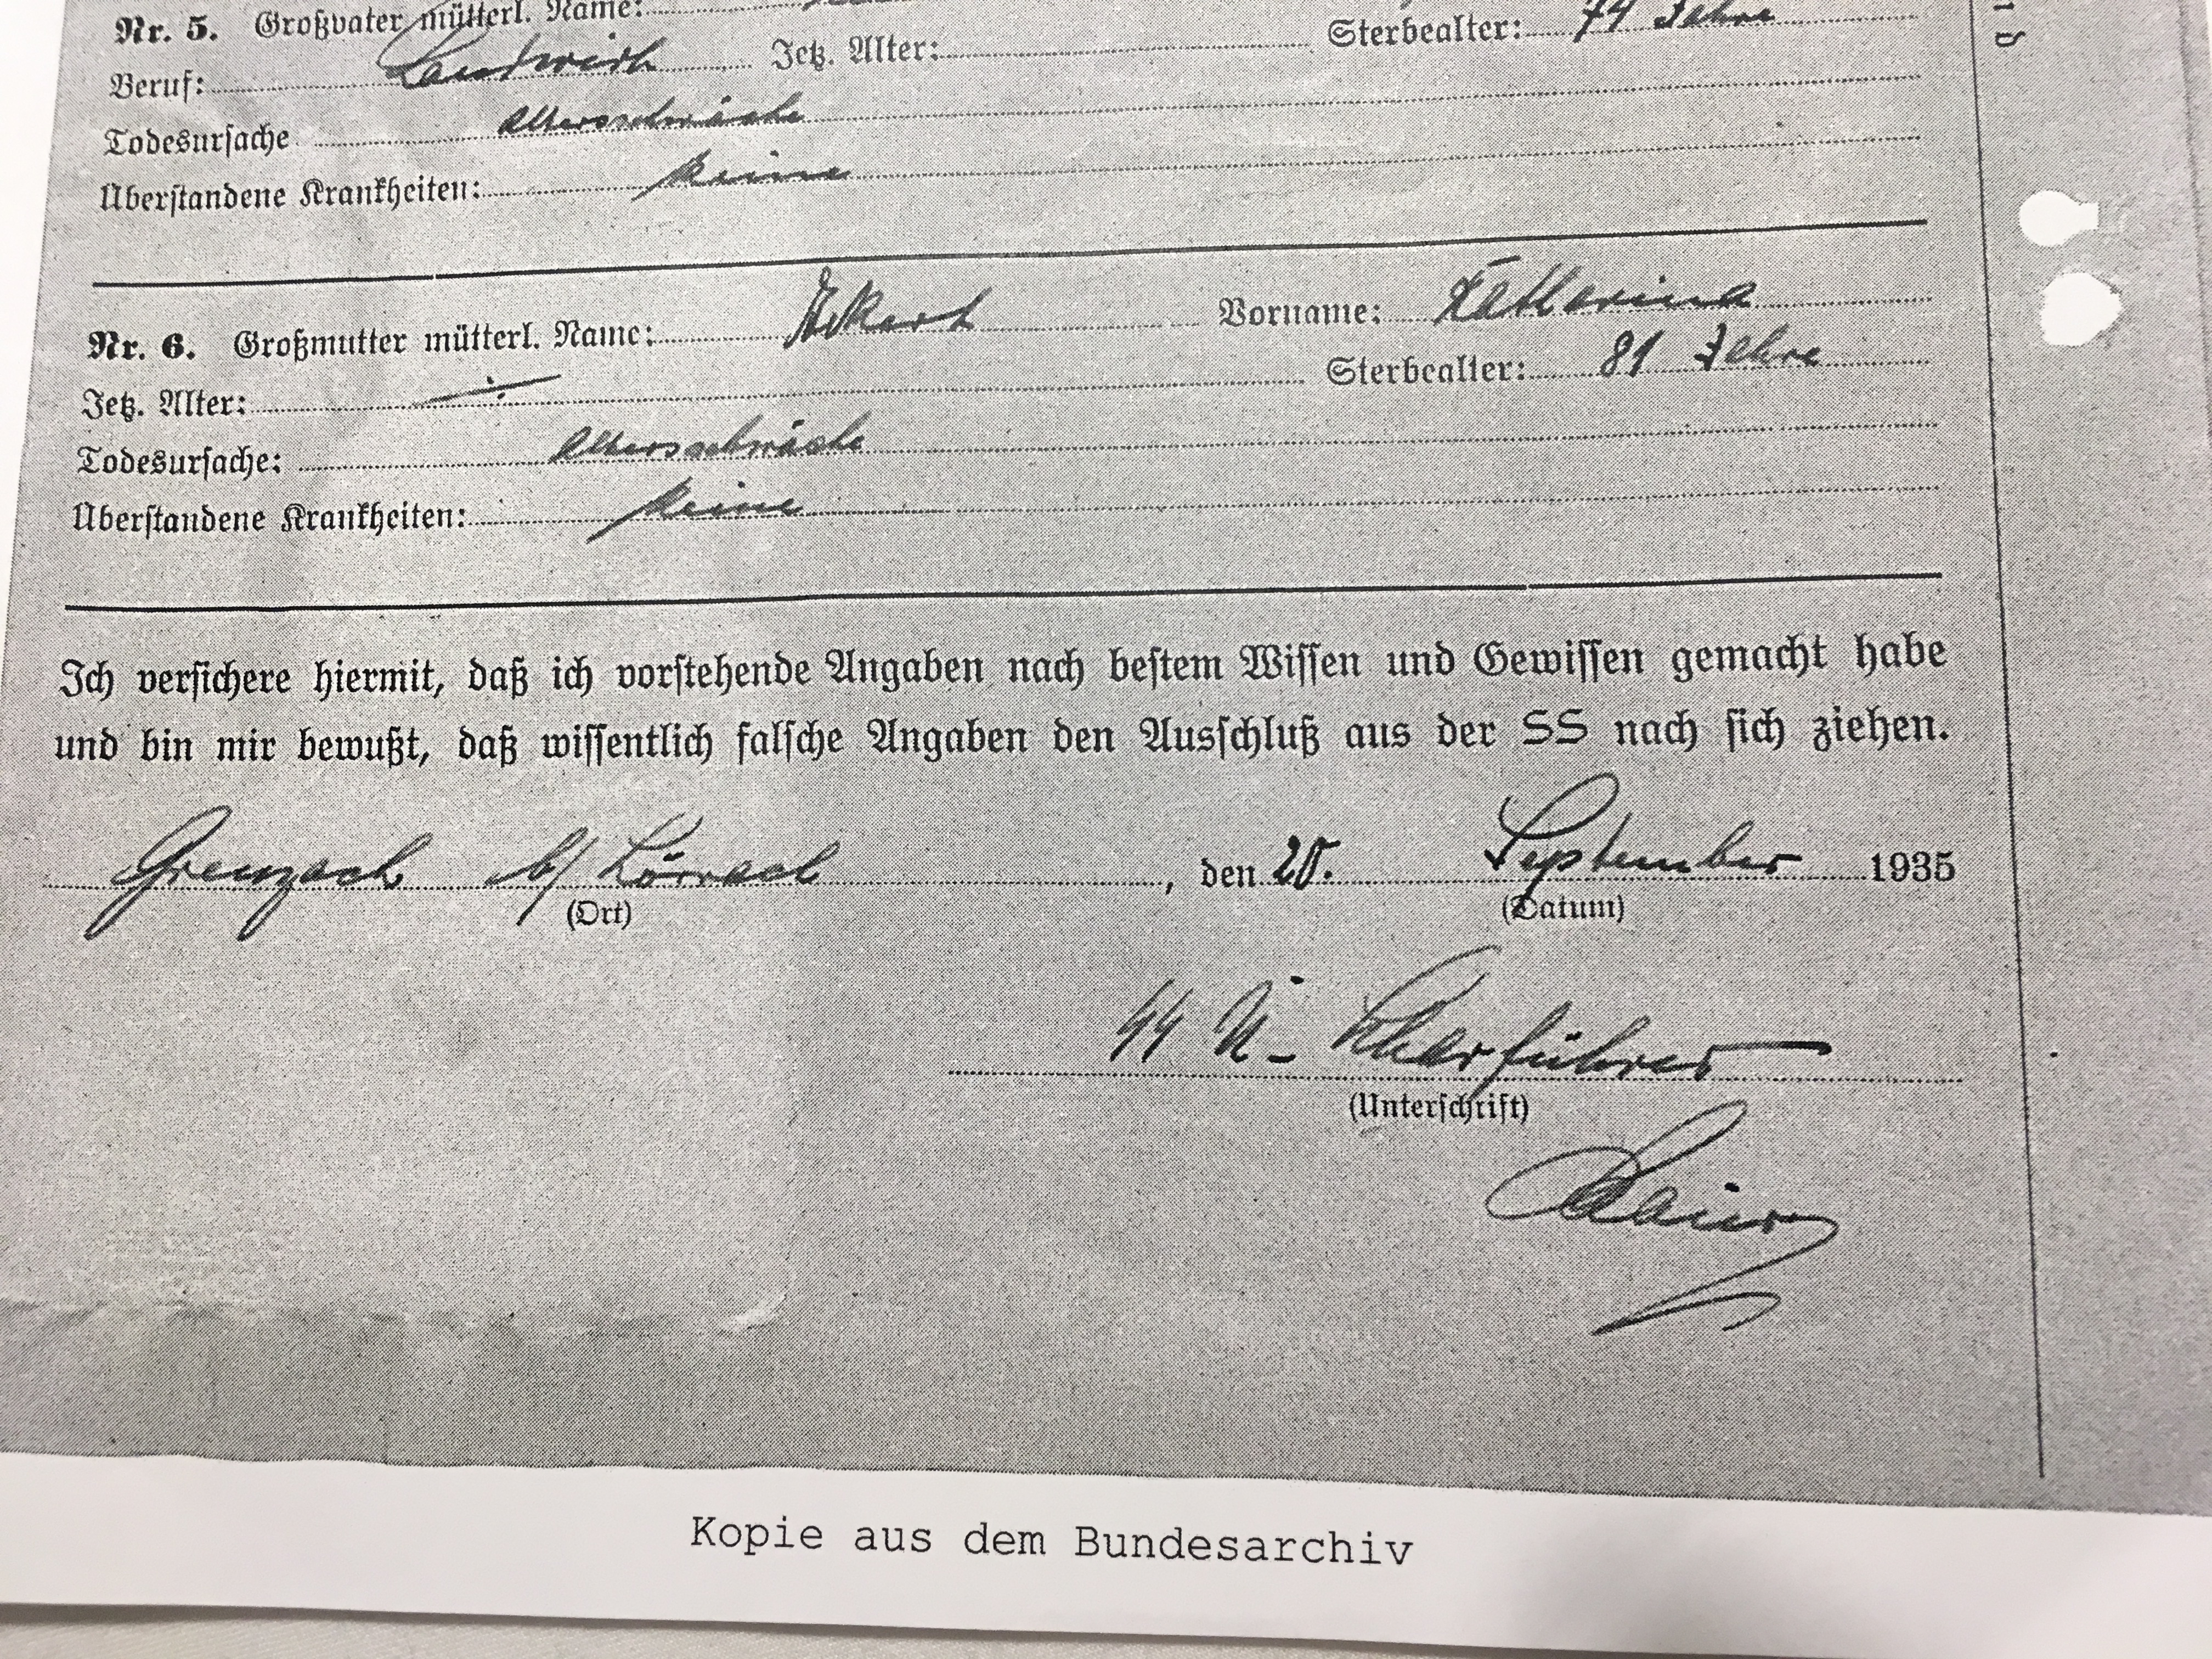 Nr. 5. Großvater mütterl. Name:
Sterbealter: 74 Jahre
Beruf: Landwirth Jetz. Alter:
Todesursache Altersschwäche
Überstandene Krankheiten: keine
Nr. 6. Großmutter mütterl. Name: Eckert Vorname: Katharina
Jetz. Alter: Sterbealter: 81 Jahre
Todesursache: Altersschwäche
Überstandene Krankheiten: keine
Ich versichere hiermit, daß ich vorstehende Angaben nach bestem Wissen und Gewissen gemacht habe
und bin mir bewußt, daß wissentlich falsche Angaben den Ausschluß aus der SS nach sich ziehen.
Grenzach b/ Lörrach, den 20. September 1935
(Ort) (Datum)
SS U-Scharführer
(Unterschrift)
Kopie aus dem Bundesarchiv